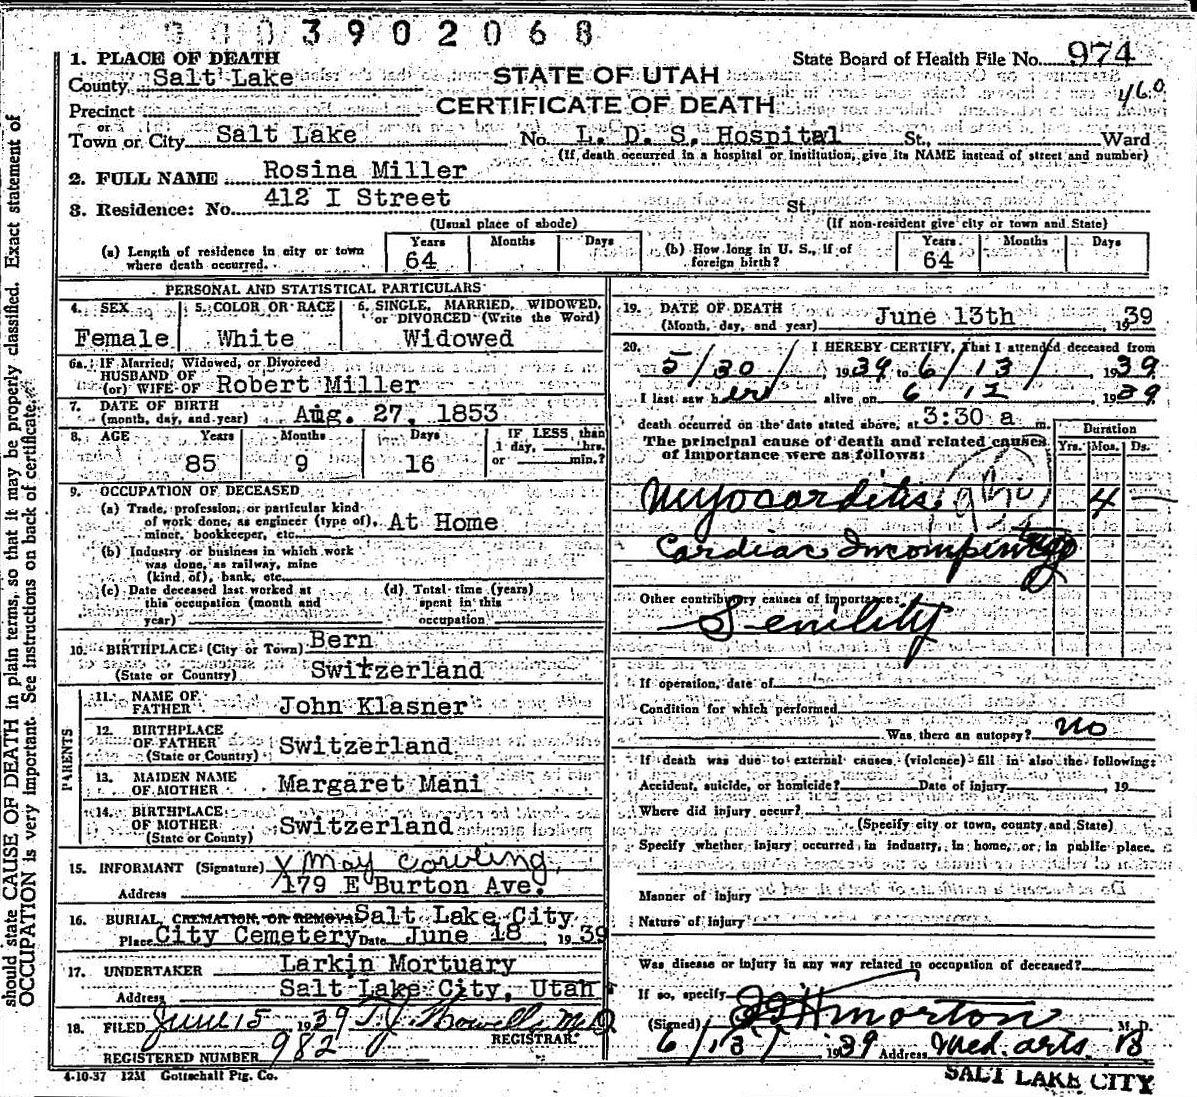 3902068
1. PLACE OF DEATH
State Board of Health File No. 974
County Salt Lake
STATE OF UTAH
460
Precinct
CERTIFICATE OF DEATH
or
Town or City Salt Lake No. L. D. S. Hospital St., Ward
(If death occurred in a hospital or institution, give its NAME instead of street and number)
2. FULL NAME Rosina Miller
3. Residence: No. 412 I Street St.
(Usual place of abode) (If non-resident give city or town and State)
(a) Length of residence in city or town where death occurred. Years 64 Months Days
(b) How long in U. S., if of foreign birth? Years 64 Months Days
PERSONAL AND STATISTICAL PARTICULARS
4. SEX Female
5. COLOR OR RACE White
6. SINGLE, MARRIED, WIDOWED, or DIVORCED (Write the Word) Widowed
6a. If Married, Widowed, or Divorced
HUSBAND OF
(or) WIFE OF Robert Miller
7. DATE OF BIRTH
(month, day, and year) Aug. 27, 1853
8. AGE Years 85 Months 9 Days 16 IF LESS than 1 day, hrs. or min.?
9. OCCUPATION OF DECEASED
(a) Trade, profession, or particular kind
of work done, as engineer (type of), At Home
miner, bookkeeper, etc.
(b) Industry or business in which work
was done, as railway, mine
(kind of), bank, etc.
(c) Date deceased last worked at
this occupation (month and
year)
(d) Total time (years)
spent in this
occupation
10. BIRTHPLACE (City or Town) Bern
(State or Country) Switzerland
PARENTS
11. NAME OF
FATHER John Klasner
12. BIRTHPLACE
OF FATHER Switzerland
(State or Country)
13. MAIDEN NAME
OF MOTHER Margaret Mani
14. BIRTHPLACE
OF MOTHER Switzerland
(State or County)
15. INFORMANT (Signature) X May Cowling
Address 179 E Burton Ave.
16. BURIAL, CREMATION, OR REMOVAL Salt Lake City
Place City Cemetery Date June 18, 1939
17. UNDERTAKER Larkin Mortuary
Address Salt Lake City, Utah
18. FILED June 15 1939 T. J. Howells M.D.
REGISTRAR
REGISTERED NUMBER 982
4-10-37 12M Gottschall Ptg. Co.
19. DATE OF DEATH
(Month, day, and year) June 13th 1939
20. I HEREBY CERTIFY, That I attended deceased from
5/30 1939 to 6/13/ 1939
I last saw her alive on 6 12 1939
death occurred on the date stated above, at 3:30 a m.
The principal cause of death and related causes
of importance were as follows:
Duration
Yrs. Mos. Ds.
Myocarditis 4
Cardiac
Other contributory causes of importance:
Senility
If operation, date of
Condition for which performed
Was there an autopsy? no
If death was due to external causes (violence) fill in also the following:
Accident, suicide, or homicide? Date of injury , 19
Where did injury occur?
(Specify city or town, county and State)
Specify whether injury occurred in industry, in home, or in public place.
Manner of injury
Nature of injury
Was disease or injury in any way related to occupation of deceased?
If so, specify
(Signed) Morton M. D.
6/13/ 1939 Address Med. arts. B
SALT LAKE CITY
should state CAUSE OF DEATH in plain terms, so that it may be properly classified. Exact statement of
OCCUPATION is very important. See instructions on back of certificate.